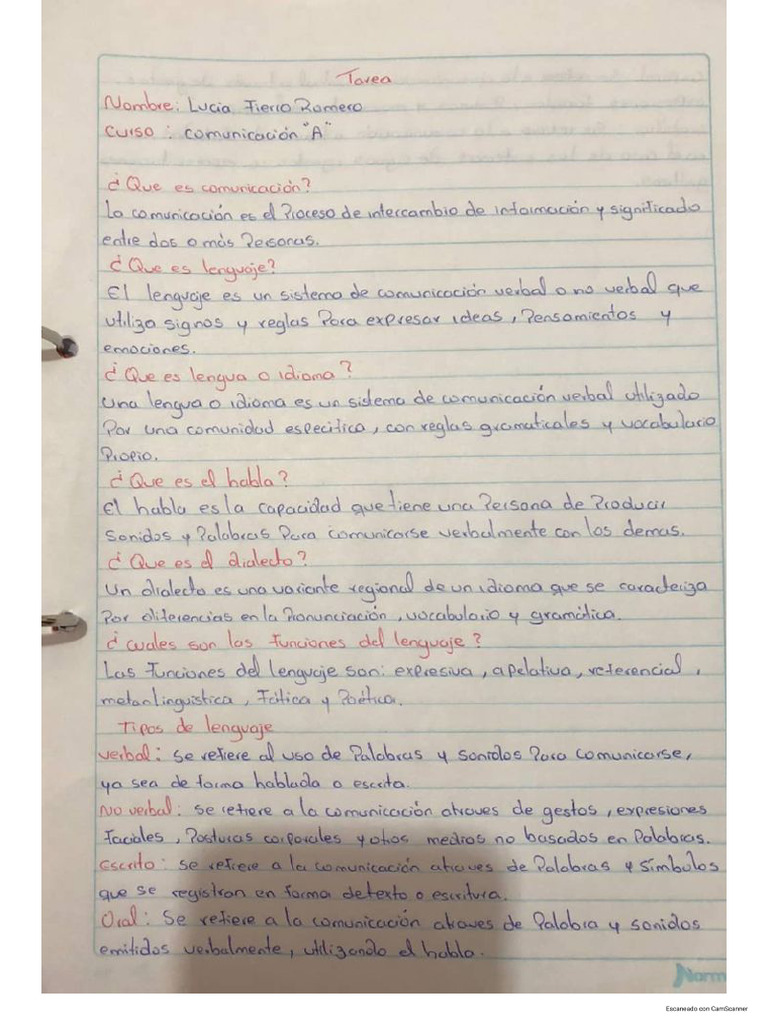 Tarea
Nombre: Lucia Fierro Romero
Curso : Comunicación "A"
¿Que es comunicación?
La comunicación es el Proceso de intercambio de información y significado
entre dos o más Personas.
¿Que es lenguaje?
El lenguaje es un sistema de comunicación verbal o no verbal que
utiliza signos y reglas Para expresar ideas, Pensamientos y
emociones.
¿Que es lengua o idioma?
Una lengua o idioma es un sistema de comunicación verbal utilizado
Por una comunidad especifica, con reglas gramaticales y vocabulario
Propio.
¿Que es el habla?
El habla es la capacidad que tiene una Persona de Producir
Sonidos y Palabras Para comunicarse verbalmente con los demas.
¿Que es el dialecto?
Un dialecto es una variante regional de un idioma que se caracteriza
Por diferencias en la Pronunciación, vocabulario y gramática.
¿Cuales son las funciones del lenguaje?
Las Funciones del lenguaje son: expresiva, apelativa, referencial,
metalinguistica, Fática y Poética.
Tipos de lenguaje
verbal: Se refiere al uso de Palabras y sonidos Para comunicarse,
ya sea de forma hablada o escrita.
No verbal: se refiere a la comunicación atraves de gestos, expresiones
faciales, Posturas corporales y otros medios no basados en Palabras.
Escrito: se refiere a la comunicación atraves de Palabras y símbolos
que se registran en forma de texto o escritura.
Oral: Se refiere a la comunicación atraves de Palabra y sonidos
emitidos verbalmente, utilizando el habla.
Norm
Escaneado con CamScanner